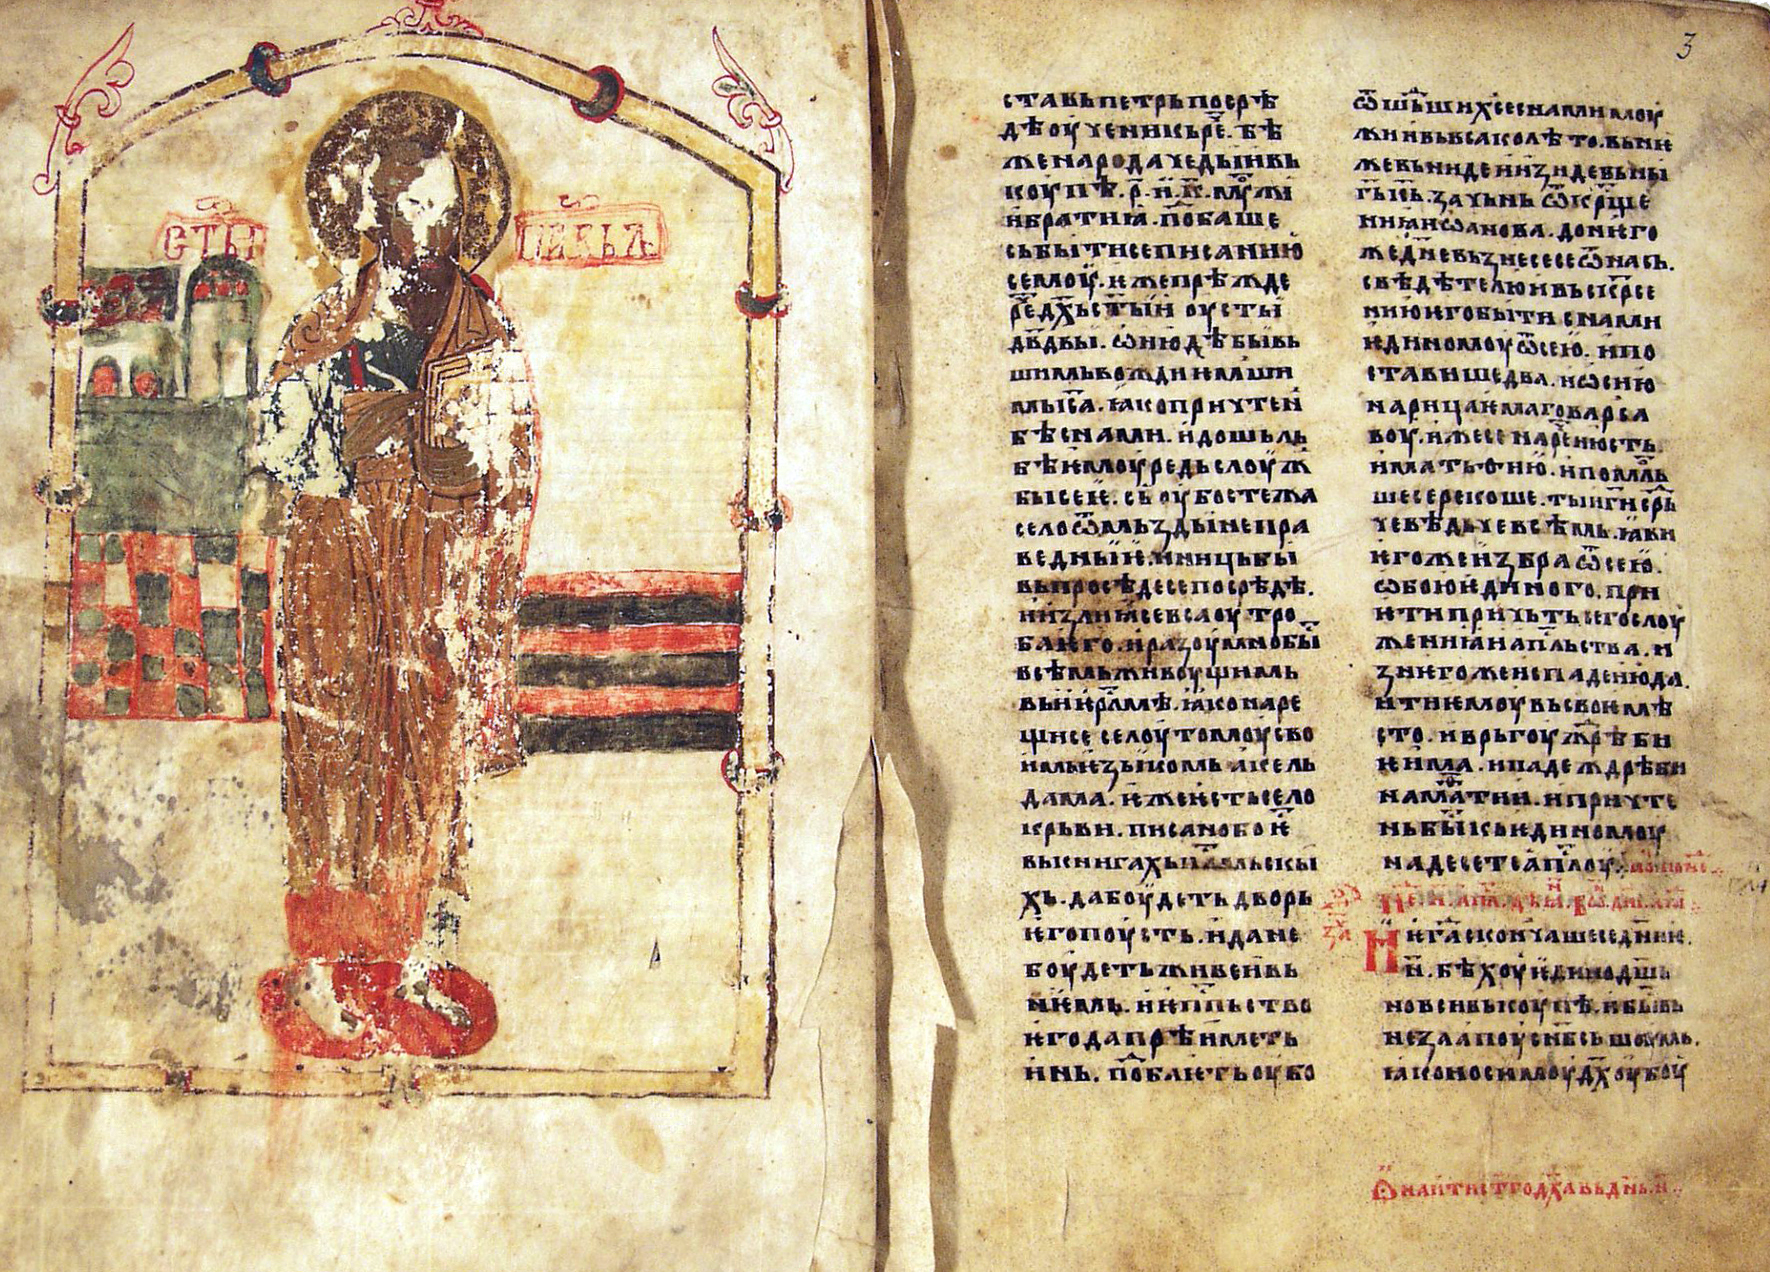 СТЫ
ПАВЬЛ
3
ставь петрь посрѣ
дѣ оу҄ченикь ре҄. бѣ
же народа чедьі вь
коупѣ. р҃. и҄. к҃. моу҄жи
и҄ братиꙗ. по҄баше
сьбыти се писанию
семоу҄. и҄же прѣжде
ре҄ дх҃ь ст҃ыи оу҄сты
дв҃двы. ѡ҄ июдѣ бывь
шимь вожди и҄мши
мь і҃са. ꙗко причтен
бѣ с нами. и҄ дошьль
бѣ ѥмоу҄ редь слоуж
бы сеѥ. сь оу҄бо стежа
село ѿ мьзды непра
ведныѥ. и ниць бы
вь просѣде се посрѣдѣ.
и҄ излиꙗ се всa оутро
ба ѥго. и҄ разоумно бы
всѣмь живоущимь
вь и҄ерлмѣ. ꙗко наре
щи се селоу томоу сво
имь ѥзыкомь акель
дама. ѥже ѥсть село
крьви. писано бо ѥ
вь книгахь п҃салмьскы
хь. да боудеть дворь
ѥго поусть. и҄ да не
боудеть живеи вь
нѥмь. и҄ ѥп҃пьство
ѥго да прѣиметь
инь. по҄баѥть оу҄бо
ѿ шьдьших се с нами моу
жии вь всако лѣто. вь ни
же вьниде и изиде вь ны
г҃ь і҃сь. зачьнь ѿ кр҃ще
ниꙗ иѡанова. до него
же дн҃е вьзнесе се ѿ нась.
свѣдѣтелю вьскр҃се
нию ѥго быти с нами
ѥдиномоу ѿ сею. и҄ по
ставише два. иѡсию
нарицаѥмаго варса
воу. и҄же се нарече июсть.
и҄ матьѳию. и҄ помль
ше се рекоше. ты г҃и ср҃ь
чевѣдьче всѣмь. ꙗви
ѥгоже и҄збра ѿ сею.
ѡбою ѥдиного. при
ѥти причьть сего слоу
жениꙗ и ап҃льства. и
з нѥгоже испаде июда.
ити ѥмоу вь своѥ мѣ
сто. и҄ врьгоу жрѣби
ѥ има. и҄ паде ждрѣби
на матѳи. и҄ причте
нь бы кь ѥдиномоу
на десете ап҃лоу.
Ѥгда скончаше се дн҃иѥ
н҃. бѣхоу ѥдинодш҃ь
но вси вькоупѣ. и҄ бывь
незаапоу с нб҃сь шоумь.
ꙗко носимоу дх҃оу боу